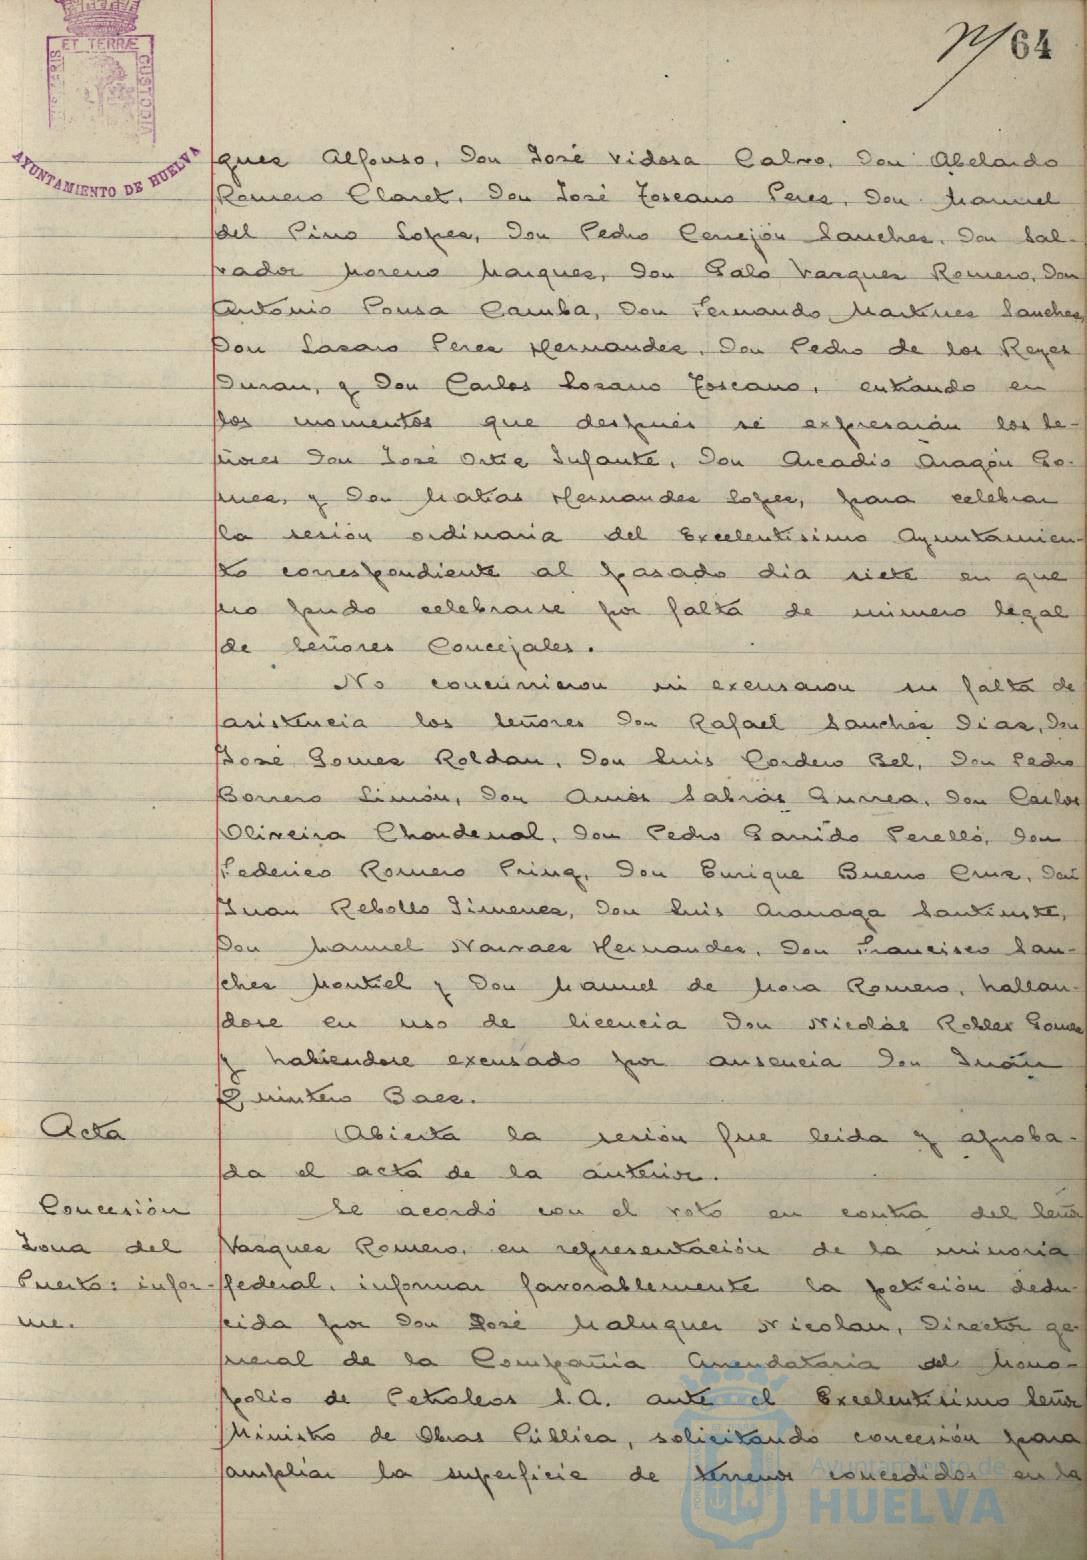 64
ET TERRÆ
CUSTODIA
AYUNTAMIENTO DE HUELVA
quez Alfonso, Don José Vidosa Calvo, Don Abelardo
Romero Claret, Don José Toscano Perez, Don Manuel
del Pino Lopez, Don Pedro Cerrejón Sanchez, Don Sal-
vador Moreno Marquez, Don Galo Vazquez Romero, Don
Antonio Pousa Camba, Don Fernando Martinez Sanchez,
Don Lazaro Perez Hernandez, Don Pedro de los Reyes
Duran, y Don Carlos Lozano Toscano, entrando en
los momentos que después se expresarán los Se-
ñores Don José Ortiz Infante, Don Arcadio Aragón Go-
mez, y Don Matias Hernandez Lopez, para celebrar
la sesión ordinaria del Excelentisimo Ayuntamien-
to correspondiente al pasado dia siete en que
no pudo celebrarse por falta de número legal
de Señores Concejales.
No concurrieron ni excusaron su falta de
asistencia los Señores Don Rafael Sanchez Diaz, Don
José Gomez Roldan, Don Luis Cordero Bel, Don Pedro
Borrero Limón, Don Amós Sabrás Gurrea, Don Carlos
Oliveira Chardenal, Don Pedro Garrido Perelló, Don
Federico Romero Prinq, Don Enrique Bueno Cruz, Don
Juan Rebollo Jimenez, Don Luis Aranaga Santiuste,
Don Manuel Narvaez Hernandez, Don Francisco San-
chez Montiel y Don Manuel de Mora Romero, hallan-
dose en uso de licencia Don Nicolás Robles Gomez
y habiendose excusado por ausencia Don Juan
Quintero Baez.
Acta
Abierta la sesión fue leida y aproba-
da el acta de la anterior.
Concesión
Zona del
Puerto: infor-
me.
Se acordó con el voto en contra del Señor
Vazquez Romero, en representación de la minoria
federal, informar favorablemente la petición dedu-
cida por Don José Maluquer Nicolau, Director ge-
neral de la Compañia Arrendataria del Mono-
polio de Petroleos S.A. ante el Excelentisimo Señor
Ministro de Obras Pública, solicitando concesión para
ampliar la superficie de terrenos concedidos en la
Ayuntamiento de
HUELVA